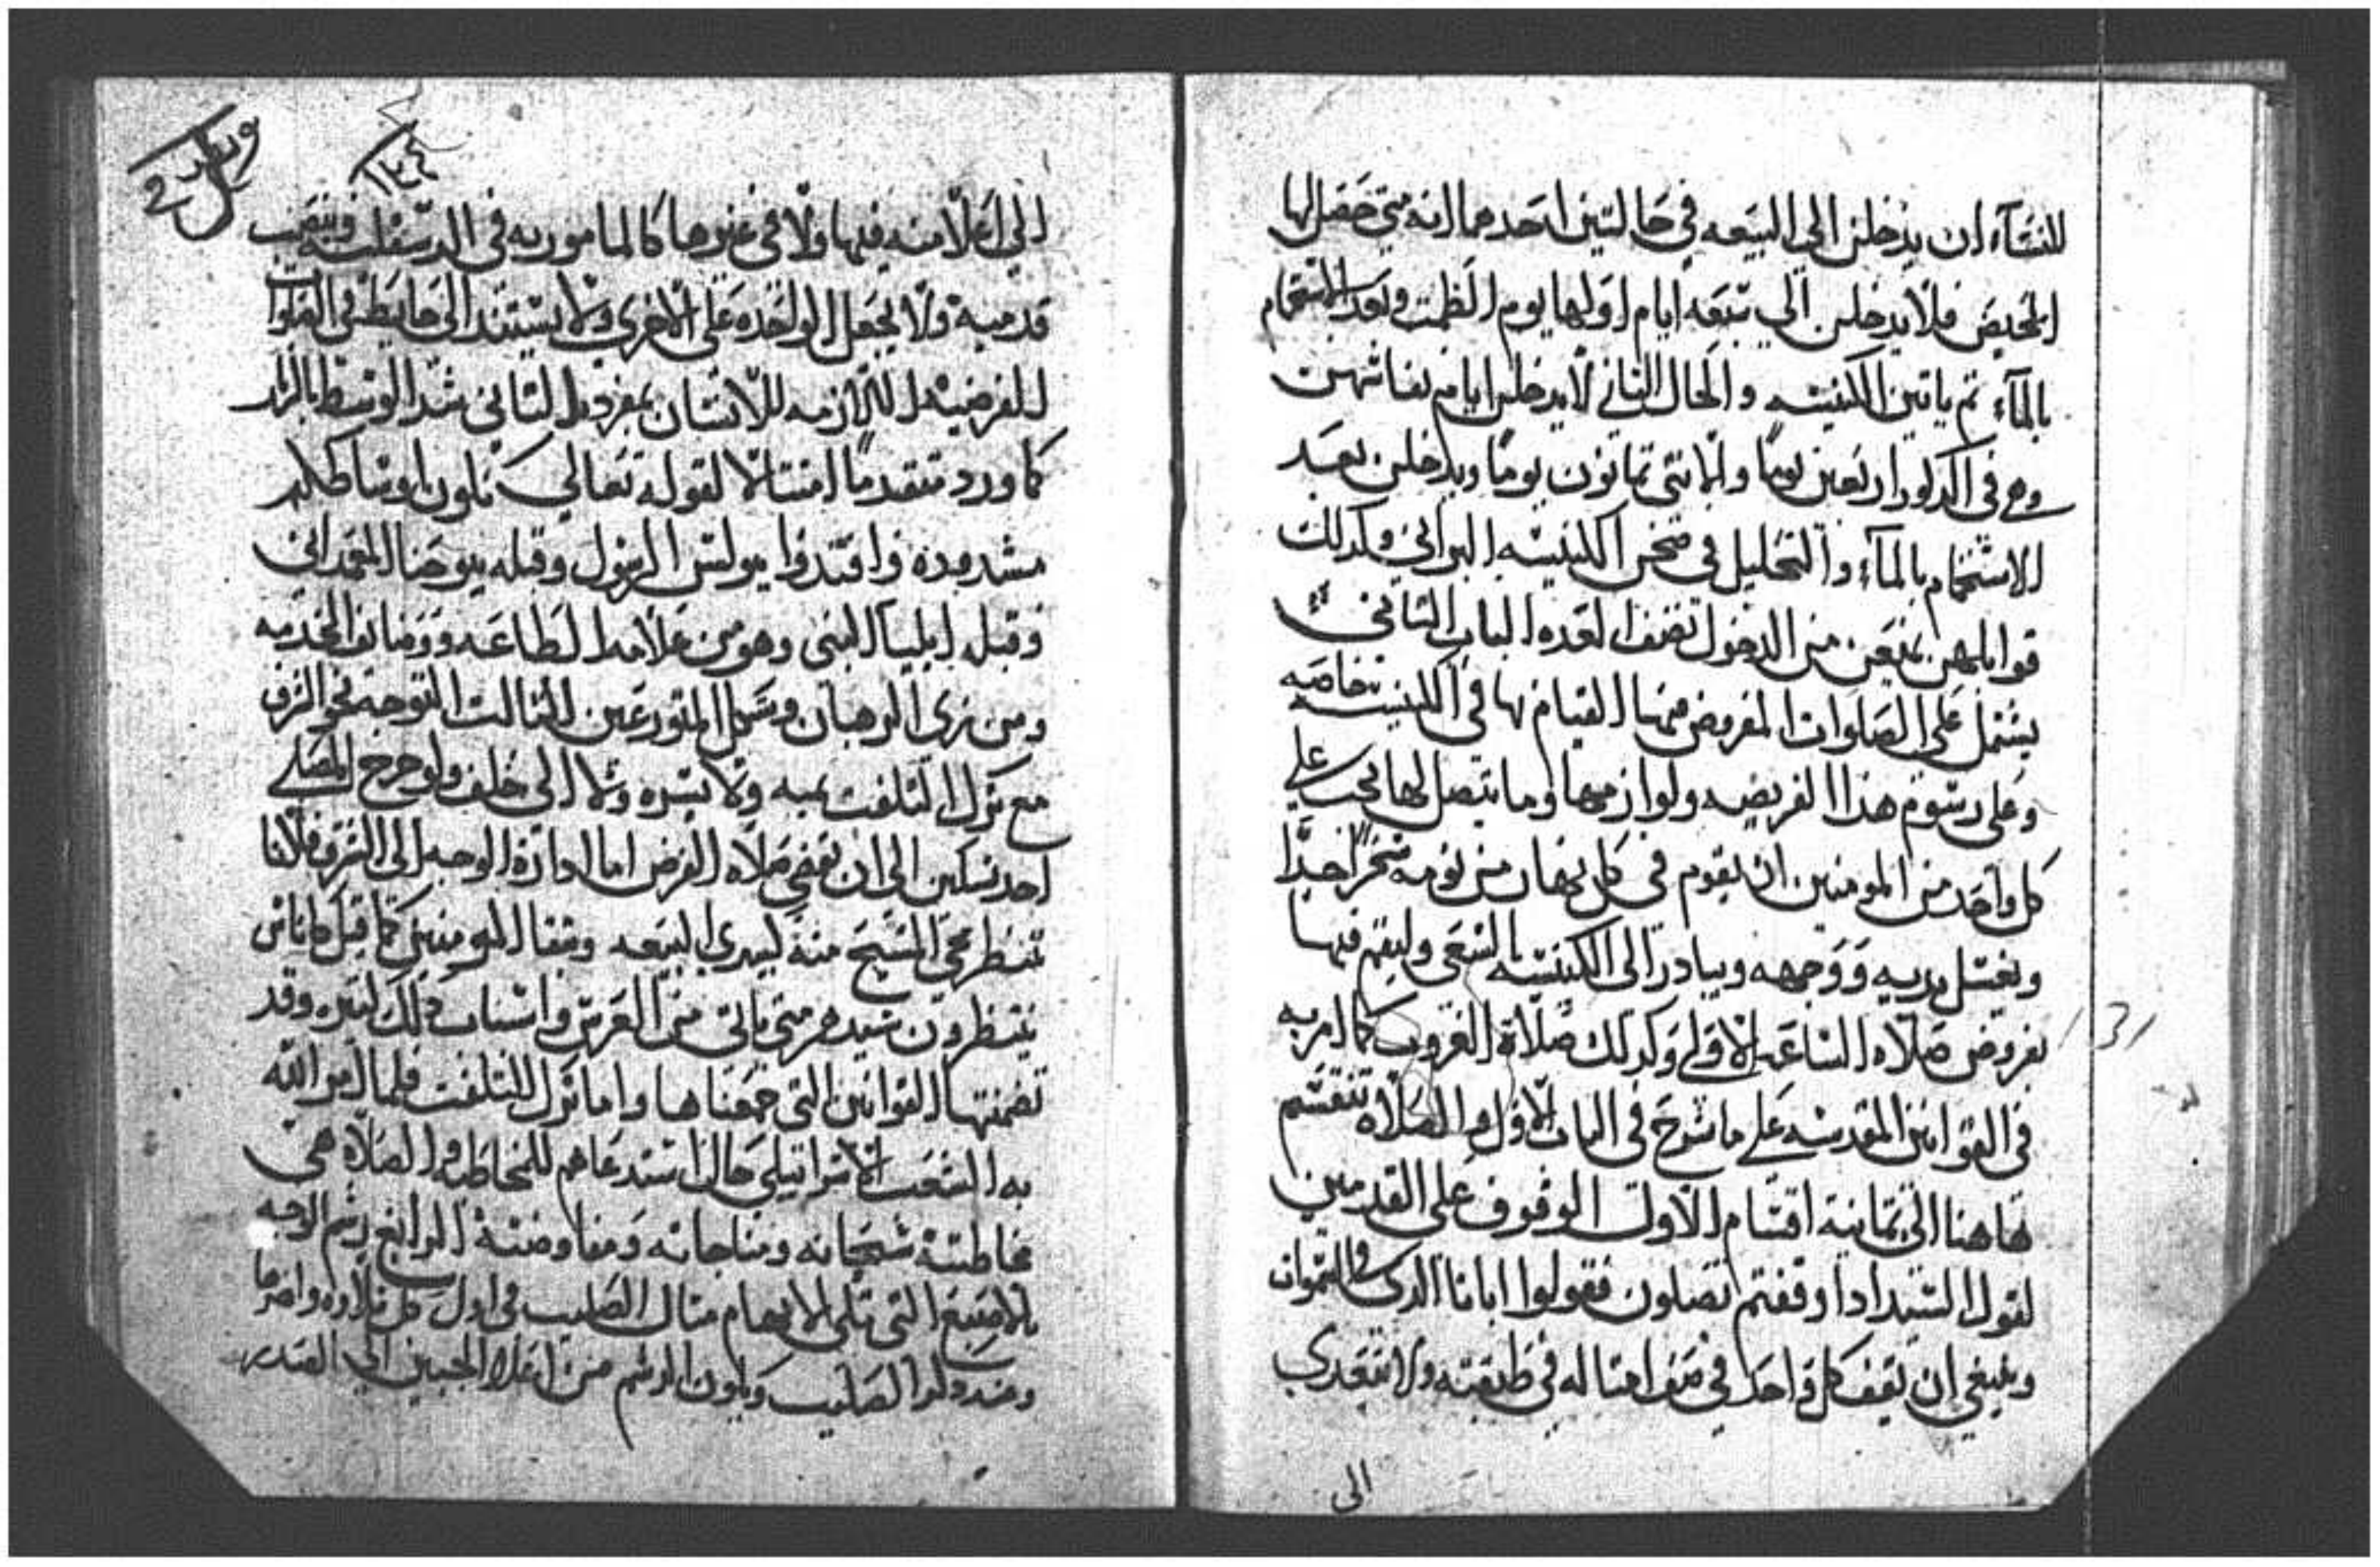 للنسآء ان يدخلن الي البيعه في حالتين احدهما انه متي حصل لها
المحيض فلا يدخلن الي سبعه ايام اولها يوم الطمت وبعد الاستحمام
بالمآء تم ياتين الكنيسه والحال التاني لا يدخلن ايام نفاسهن
وهي في الدكور اربعين يومًا والانتي تمانون يومًا ويدخلن بعد
الاستحمام بالمآء والتحليل في صحن الكنيسه البراني وكدلك
قوابلهن يمنعن من الدخول نصف العده الباب التاني
يشتمل علي الصلوات المفروض منها القيام بها في الكنيسه خاصه
وعلي رسوم هذا الفريضه ولوازمها وما يتصل بها يجب علي
كل واحد من المومنين ان يقوم في كل نهار من نومه سحرًا جدًا
ويغسل يديه ووجهه ويبادر الي الكنيسه بالسعي وليقم فيها
بفروض صلاه الساعه الاولي وكدلك صلاة الغروب كما امر به
في القوانين المقدسه علي ما شرح في الباب الاول والصلاه تنقسم
هاهنا الي تمانية اقسام الاول الوقوف علي القدمين
لقول السيد ادا وقفتم تصلون فقولوا ابانا الدي في السموات
وينبغي ان يقف كل واحد في صف امتاله في طبقته ولا يتعدي
الي
١٢٤
الي اعلا منه فيها ولا في غيرها كالمامور به في الدسقليه وينصب
قدميه ولا يجعل الواحده علي الاخري ولا يستند الي حايط في الصلوات
الفرضيه اللازمه للانسان بمفرده التاني شد الوسط بالزنار
كما ورد متقدمًا امتتالا لقوله تعالي تكون اوساطكم
مشدوده واقتدوا ببولس الرسول وقبله بيوحنا المعمداني
وقبله ايليا النبي وهو من علامه الطاعه وومناف الخدمه
ومن زي الرهبان وشكل المتورعين التالت التوجه نحو الشرق
مع ترك التلفت يمنه ولا يسره ولا الي خلف ولو خرج المصلي
احد سكين الي ان تقضي صلاه الفرض اما ادارة الوجه الي الشرق فلاننا
ننتظر مجي المسيح منه ليهدي البيعه وشفا المومنين كما قيل كاناس
ينتظرون سيدهم متي ياتي من العرس واسباب دلك كتيره وقد
تضمنتها القوانين التي جمعناها واما ترك التلفت فلما امر الله
به الشعب الاسراتيلي حال استدعاهم للمخاطبه والصلاة هي
مخاطبتة سبحانه ومناجاته ومفاوضتة الرابع رشم الوجه
بالاصبع التي تلي الابهام متال الصليب في اول كل تلاوه واخرها
وعند دكر الصليب ويكون الرشم من اعلا الجبين الي الصدر